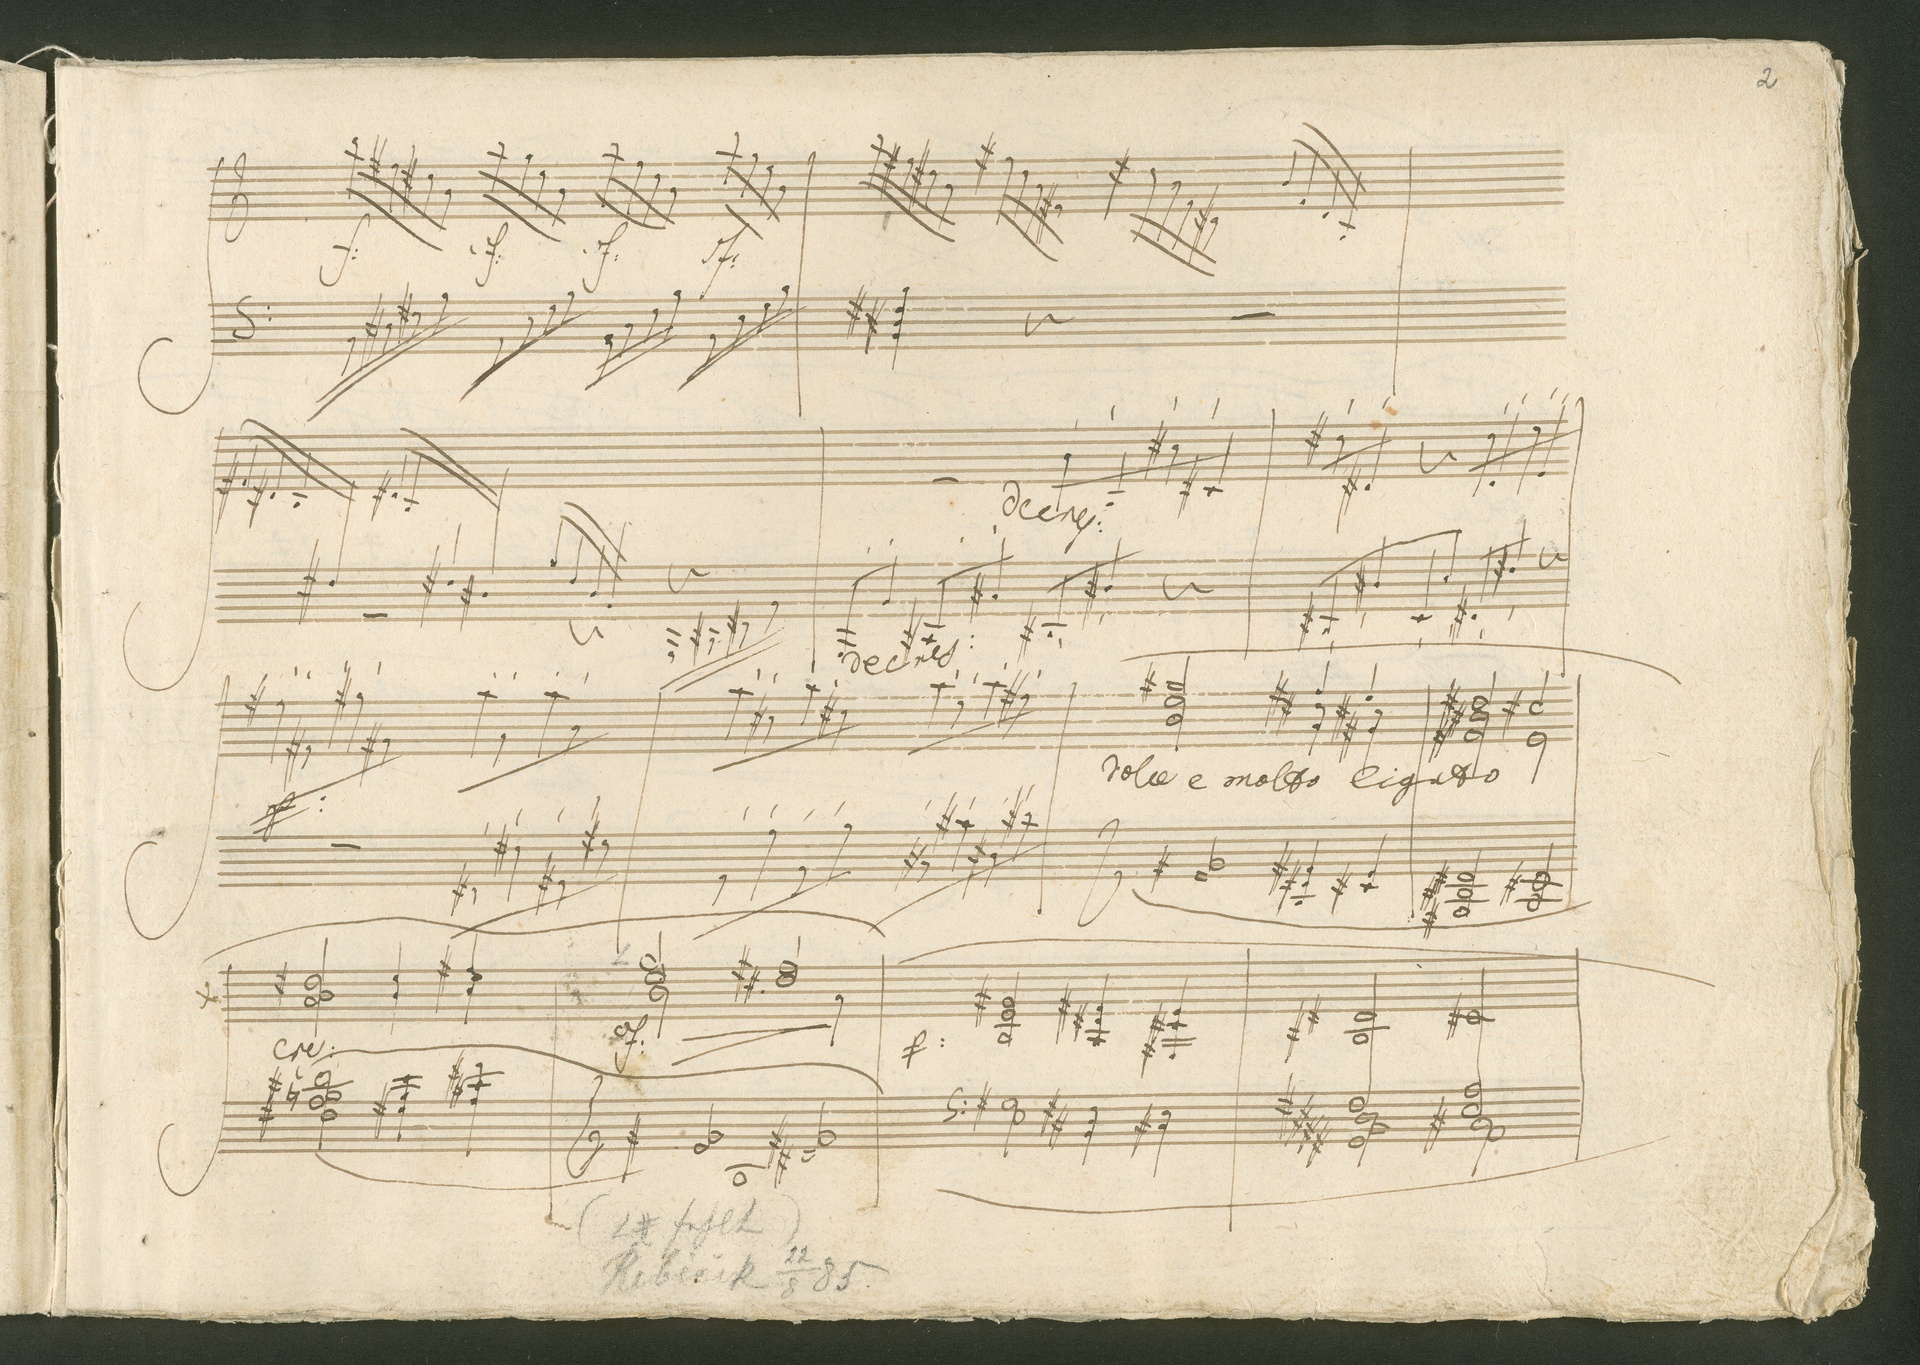 2
f: sf: sf: sf:
decres:
decres:
f:
dolce e molto ligato
cre:
sf:
p:
(2# fehlt)
Rebicek 22/8 85.